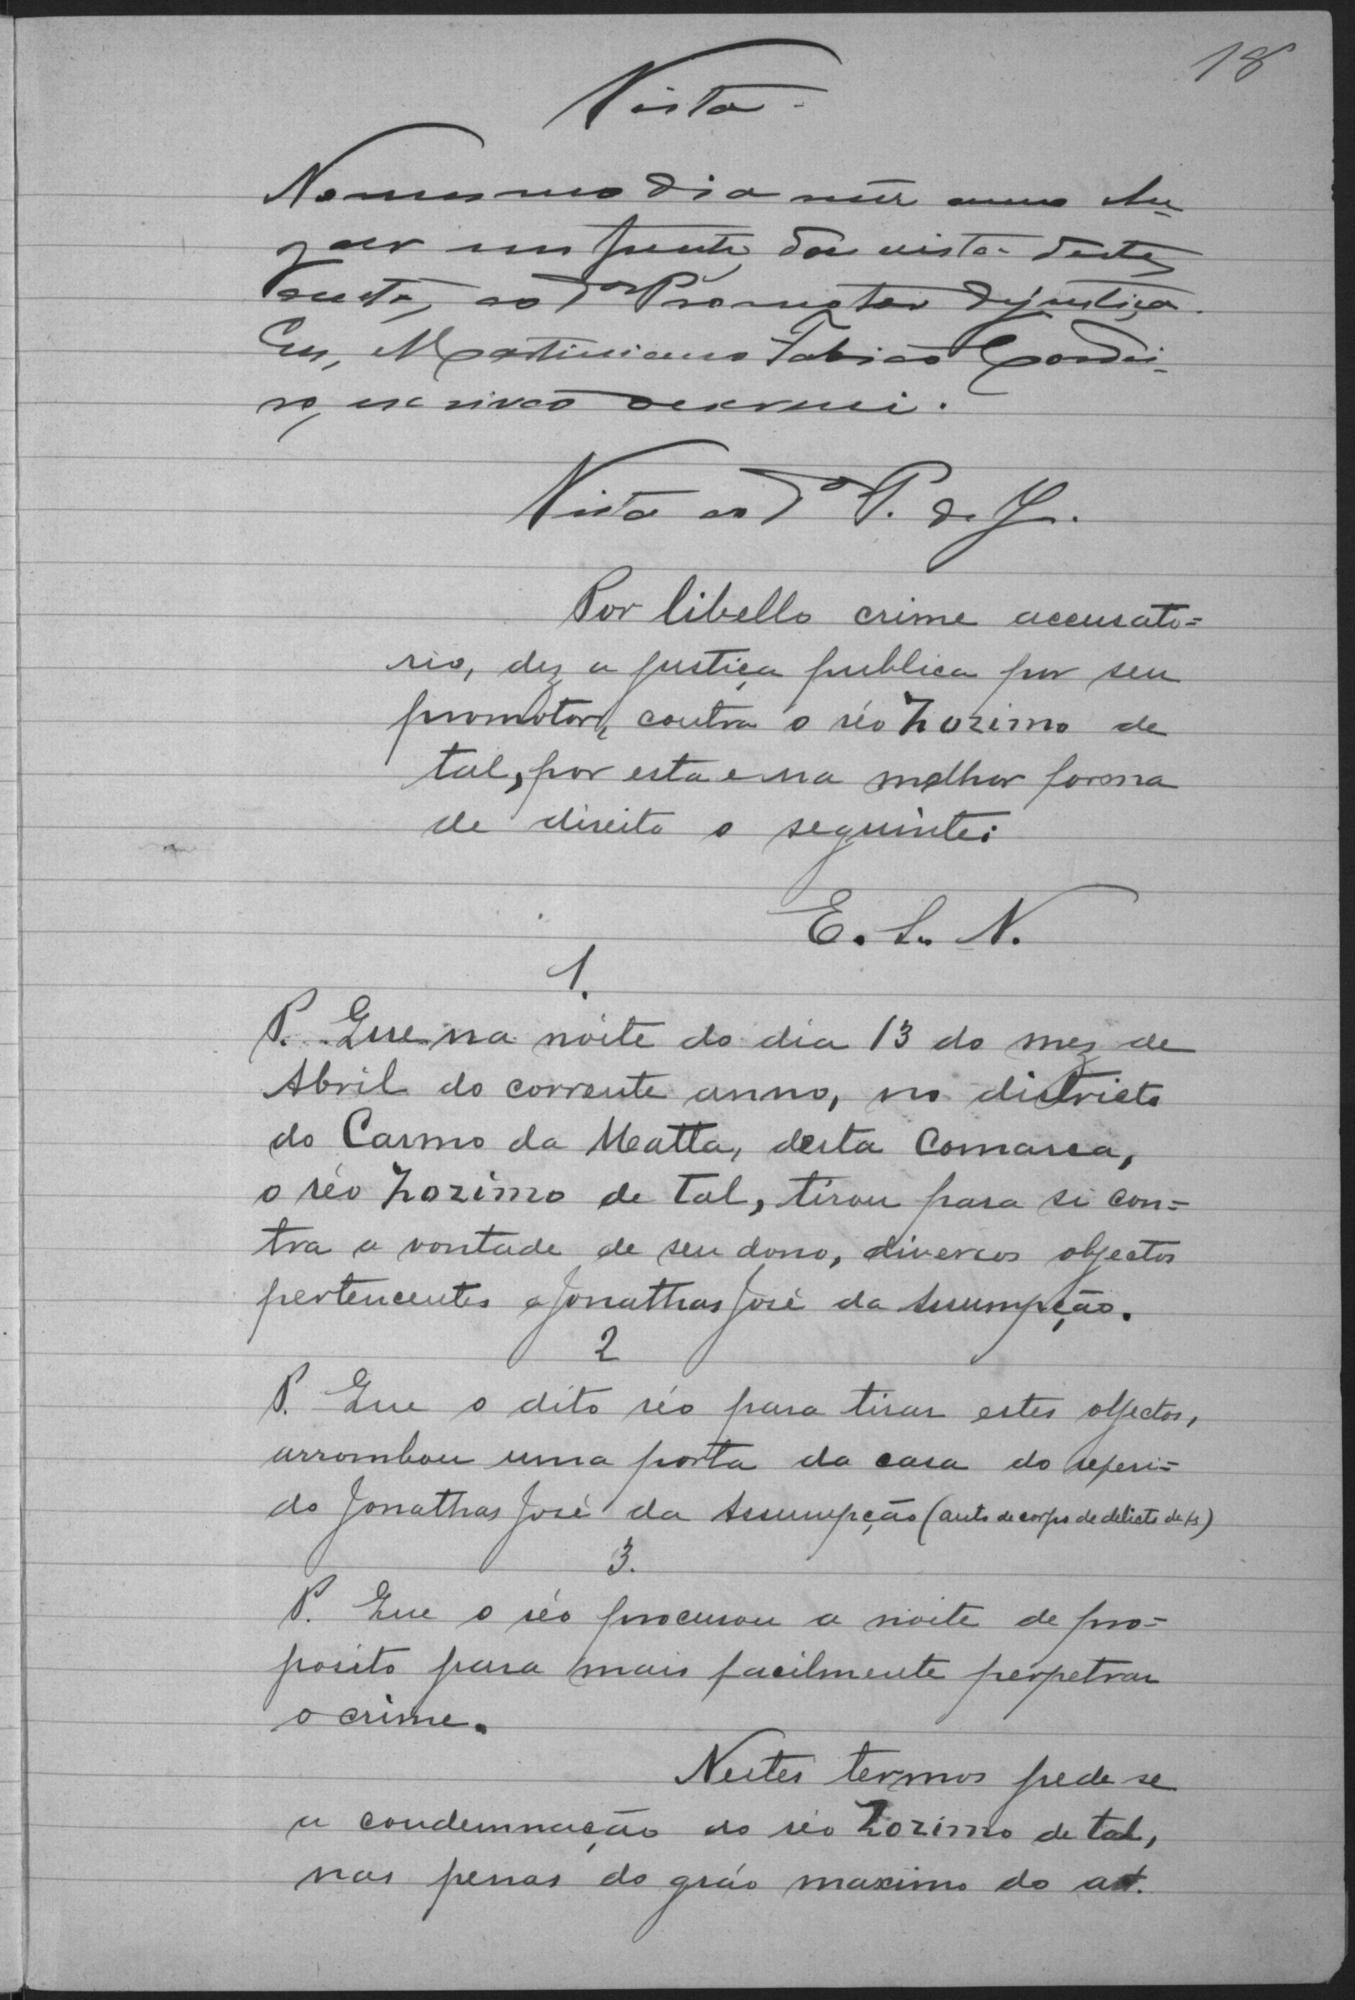 18
Vista
No mesmo dia mez anno e lu-
gar em frente dou vista destes
autos, ao Dor Promotor de justiça.
Eu, Martiniano Fabião Cordei-
ro, escrivão o escrevi.
Vista ao Dor P. de J.
Por libello crime accusato=
rio, diz a justiça publica por seu
promotor, contra o réo Zozimo de
tal, por esta e na melhor forma
de direito o seguinte:
E. S. N.
1.
P. Que na noite do dia 13 do mez de
Abril do corrente anno, no districto
do Carmo da Matta, desta Comarca,
o réo Zozimo de tal, tirou para si con=
tra a vontade de seu dono, diversos objectos
pertencentes a Jonathas José da Assumpção.
2
P. Que o dito réo para tirar estes objectos,
arrombou uma porta da casa do referi=
do Jonathas José da Assumpção (auto de corpo de delicto de fs)
3.
P. Que o réo procurou a noite de pro=
posito para mais facilmente perpetrar
o crime.
Nestes termos pede se
a condemnação do réo Zozimo de tal,
nas penas do gráo maximo do art.